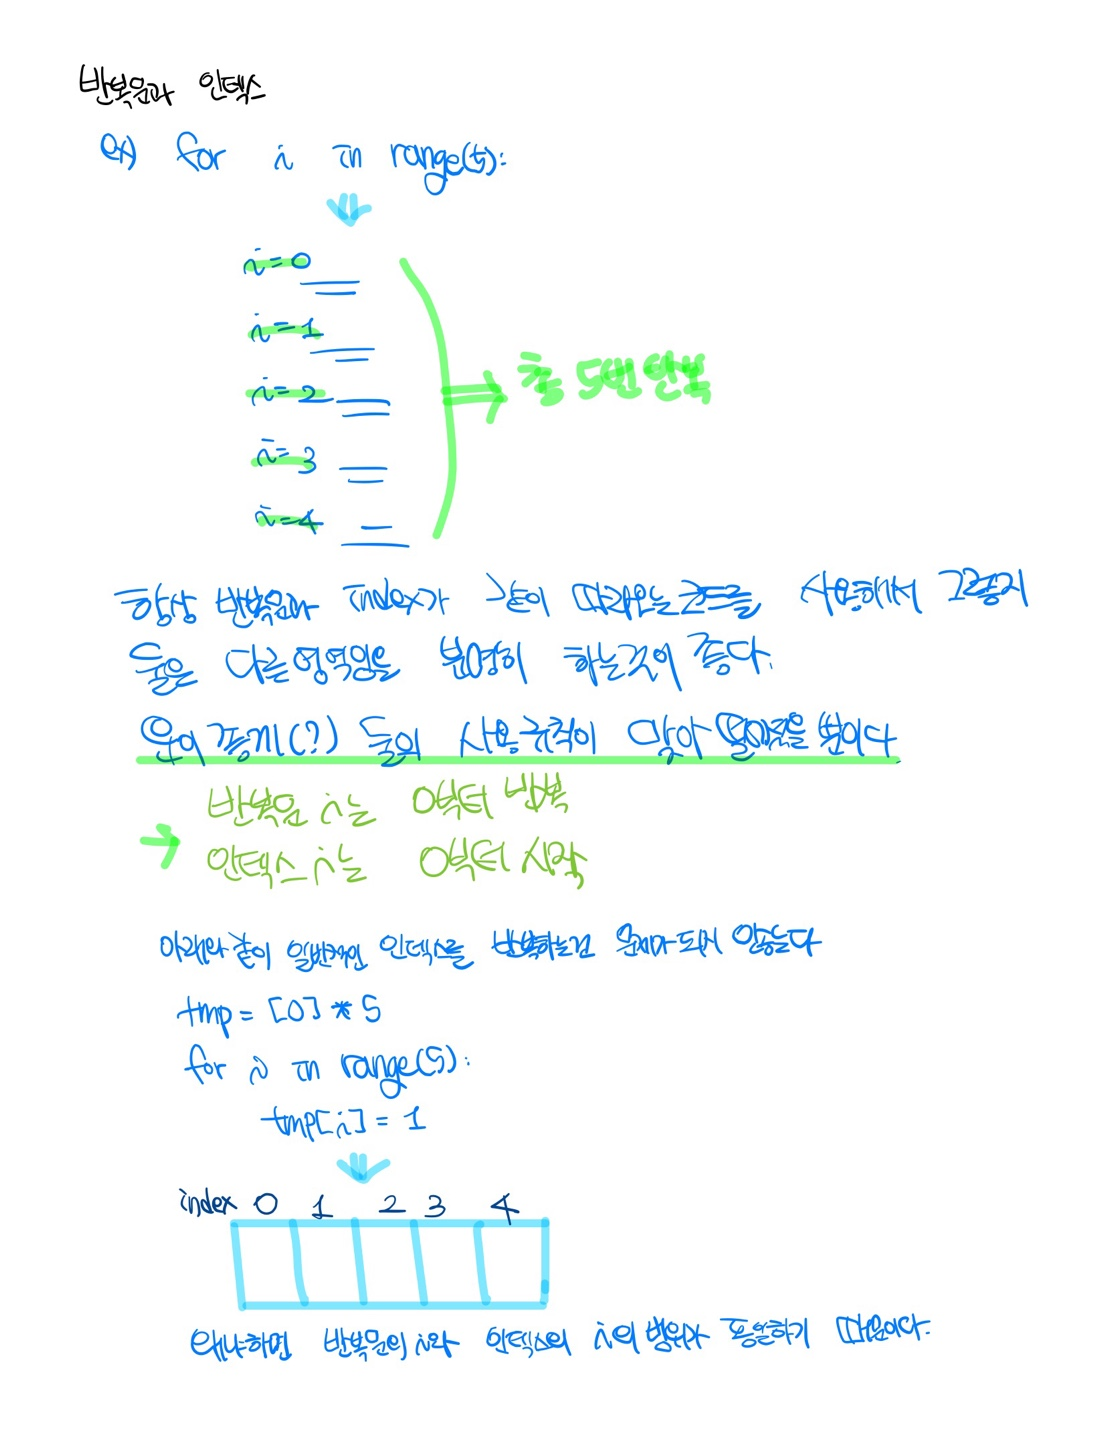 반복문과 인덱스
ex) for i in range(5):
i=0
i=1
i=2
i=3
i=4
총 5번 반복
항상 반복문과 index가 같이 따라오는 코드를 사용해서 그렇지
둘은 다른 영역임을 분명히 하는것이 좋다.
운이 좋게(?) 둘의 사용규칙이 맞아 떨어졌을 뿐이다
반복문 i는 0부터 반복
인덱스 i는 0부터 시작
아래와 같이 일반적인 인덱스를 반복하는건 문제가 되지 않는다
tmp = [0] * 5
for i in range(5):
tmp[i] = 1
index 0 1 2 3 4
왜냐하면 반복문의 i와 인덱스의 i의 범위가 동일하기 때문이다.